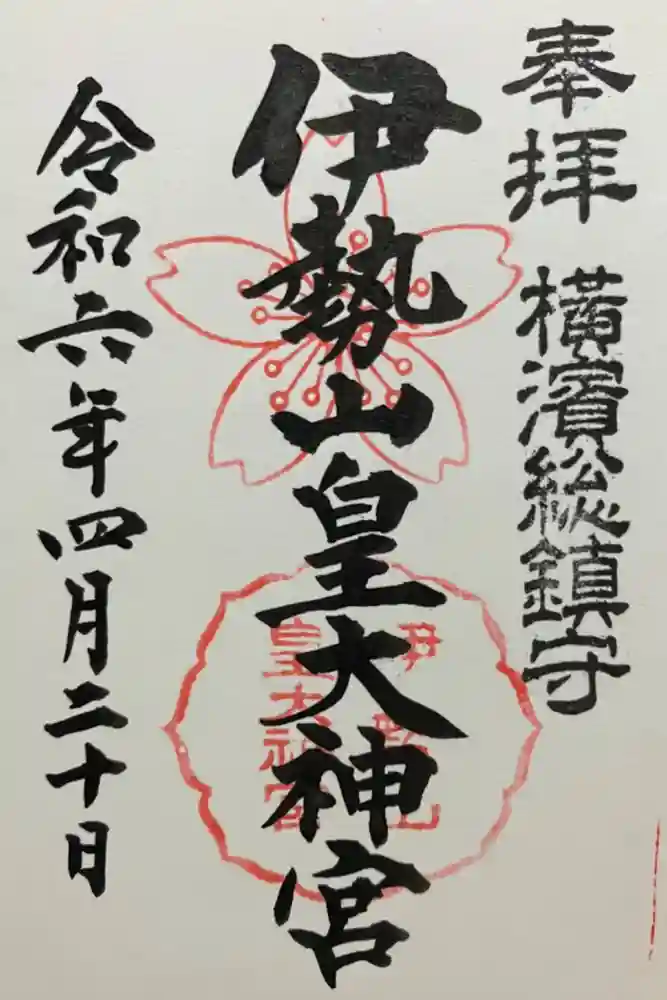 奉拝
横濱総鎮守
伊勢山皇大神宮
伊勢山
皇大神宮
令和六年四月二十日